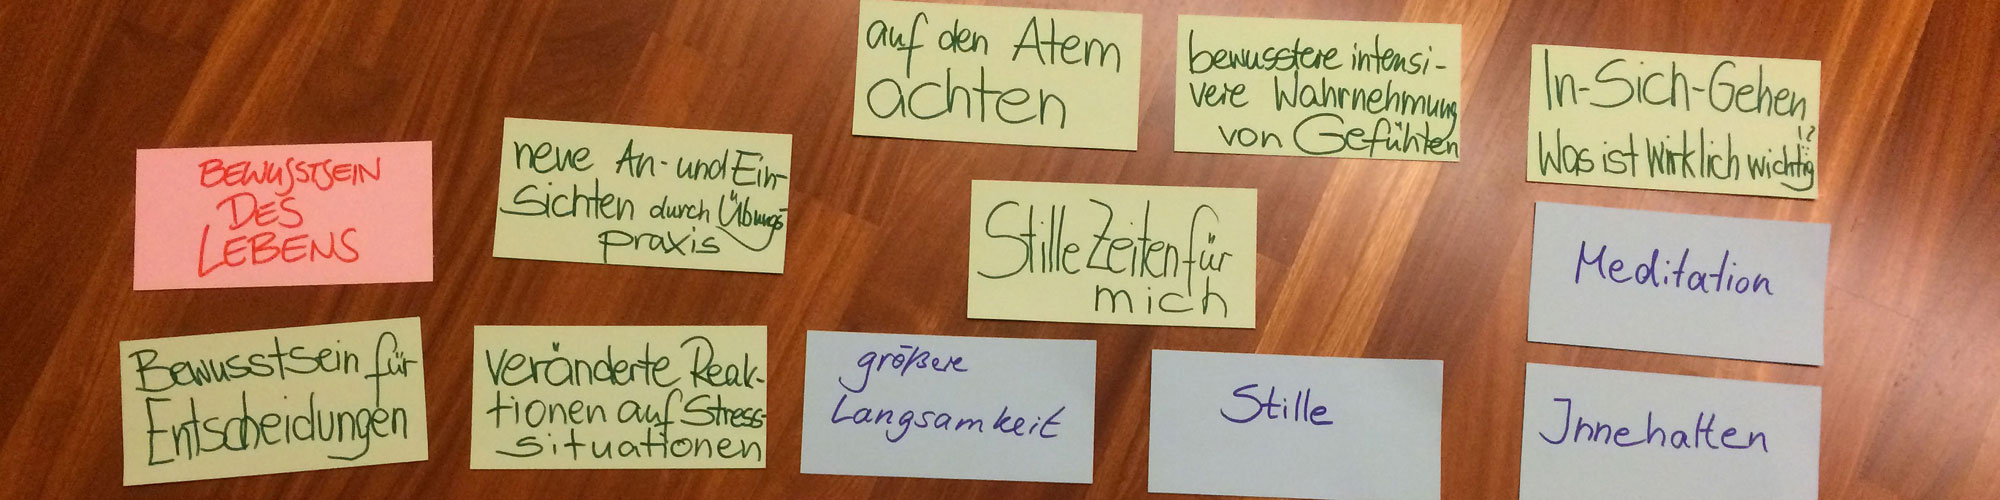 BEWUSSTSEIN
DES
LEBENS
neue An- und Ein-
Sichten durch Übungs-
praxis
auf den Atem
achten
bewusstere intensi-
vere Wahrnehmung
von Gefühlen
In-Sich-Gehen
Was ist wirklich wichtig!?
Stille Zeiten für
mich
Meditation
Bewusstsein für
Entscheidungen
veränderte Reak-
tionen auf Stress-
situationen
größere
Langsamkeit
Stille
Innehalten